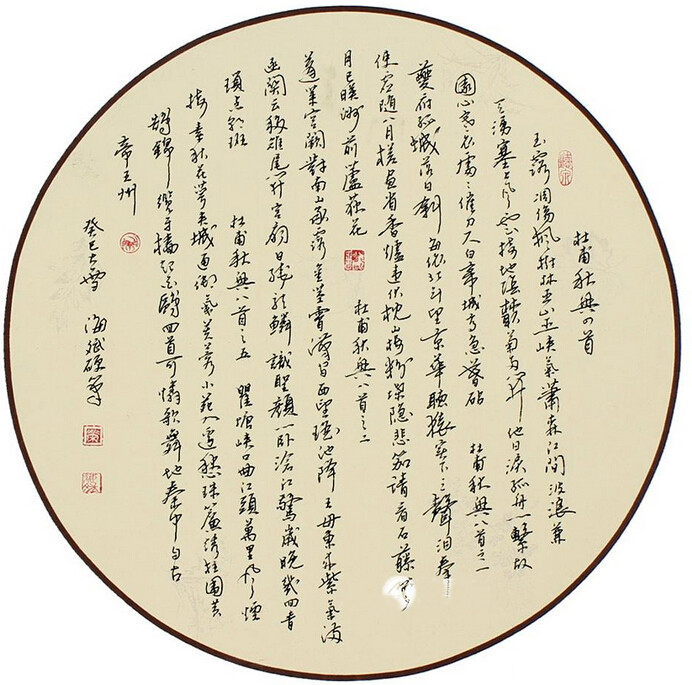 杜甫秋興四首
玉露凋傷楓樹林巫山巫峽氣蕭森江間波浪兼
天湧塞上風雲接地陰叢菊兩開他日淚孤舟一繫故
園心寒衣處々催刀尺白帝城高急暮砧 杜甫秋興八首之一
夔府孤城落日斜每依北斗望京華聽猿實下三聲泪奉
使虛隨八月槎畫省香爐違伏枕山樓粉堞隱悲笳請看石藤蘿
月已映洲前蘆荻花 杜甫秋興八首之二
蓬萊宮闕對南山承露金莖霄漢間西望瑤池降王母東來紫氣滿
函關云移雉尾開宮扇日繞龍鱗識聖顏一臥滄江驚歲晚幾回青
瑣點朝班 杜甫秋興八首之五 瞿塘峽口曲江頭萬里風煙
接素秋花萼夾城通御氣芙蓉小苑入邊愁珠簾繡柱圍黃
鵠錦纜牙檣起白鷗回首可憐歌舞地秦中自古
帝王州
癸巳大雪